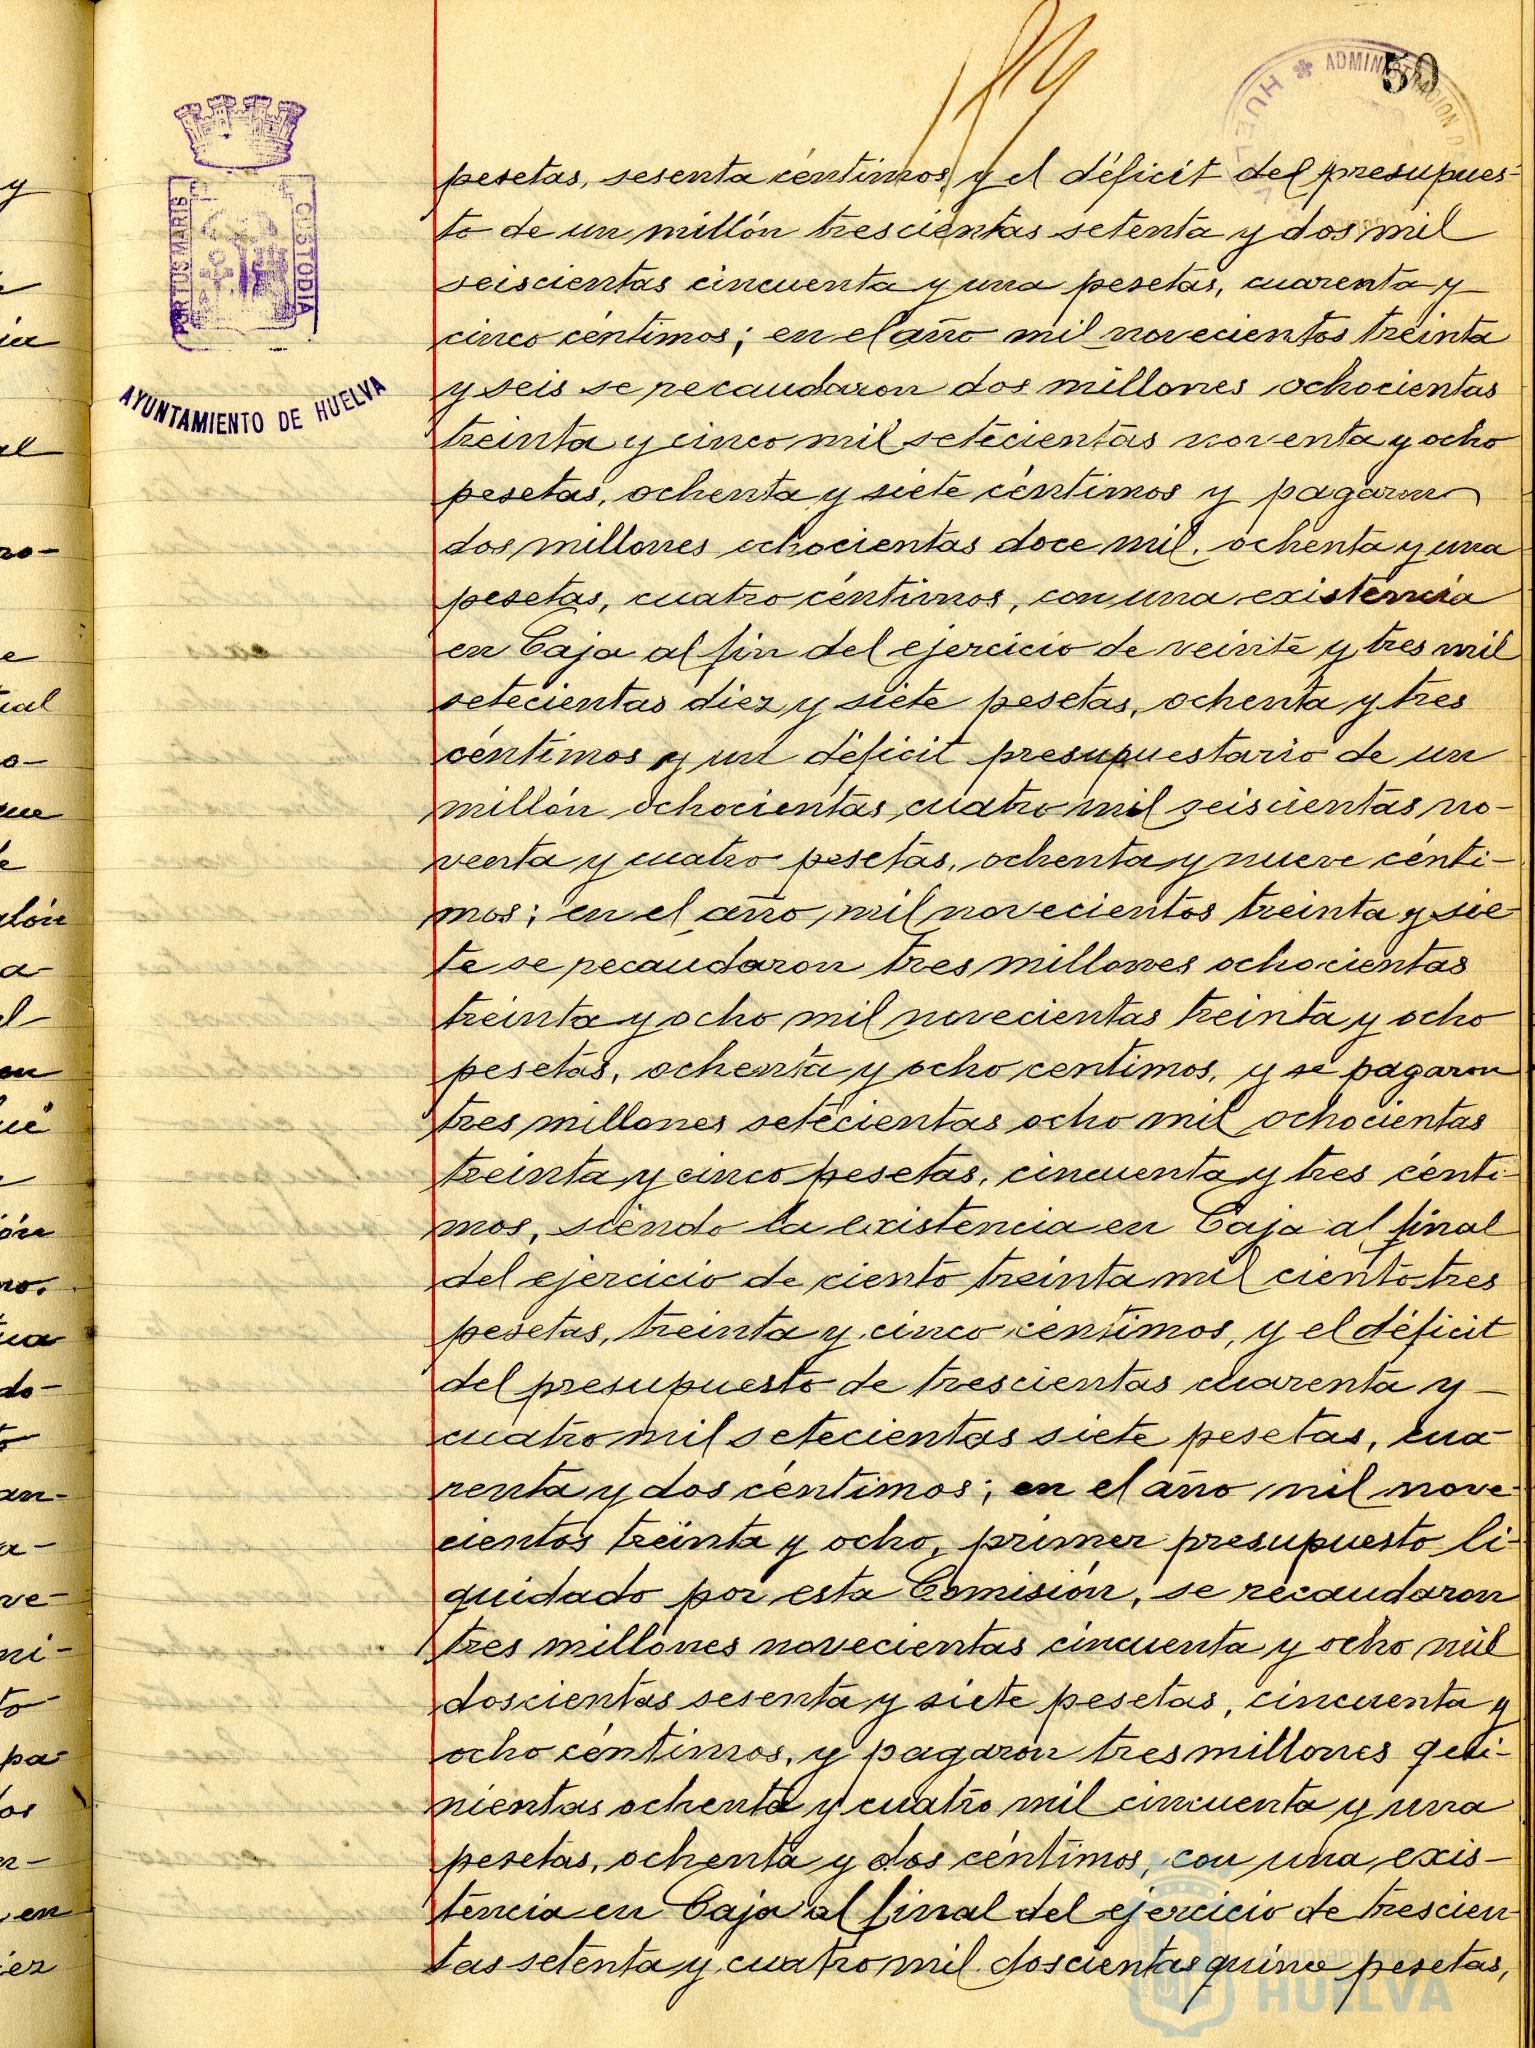 50
ADMINISTRACION D
HUELVA
PORTUS MARIS
CUSTODIA
AYUNTAMIENTO DE HUELVA
pesetas, sesenta céntimos y el déficit del presupues-
to de un millón trescientas setenta y dos mil
seiscientas cincuenta y una pesetas, cuarenta y
cinco céntimos; en el año mil novecientos treinta
y seis se recaudaron dos millones ochocientas
treinta y cinco mil setecientas noventa y ocho
pesetas, ochenta y siete céntimos y pagaron
dos millones ochocientas doce mil, ochenta y una
pesetas, cuatro céntimos, con una existencia
en Caja al fin del ejercicio de veinte y tres mil
setecientas diez y siete pesetas, ochenta y tres
céntimos y un déficit presupuestario de un
millón ochocientas cuatro mil seiscientas no-
venta y cuatro pesetas, ochenta y nueve cénti-
mos; en el año mil novecientos treinta y sie-
te se recaudaron tres millones ochocientas
treinta y ocho mil novecientas treinta y ocho
pesetas, ochenta y ocho centimos, y se pagaron
tres millones setecientas ocho mil ochocientas
treinta y cinco pesetas, cincuenta y tres cénti-
mos, siendo la existencia en Caja al final
del ejercicio de ciento treinta mil ciento tres
pesetas, treinta y cinco céntimos, y el déficit
del presupuesto de trescientas cuarenta y
cuatro mil setecientas siete pesetas, cua-
renta y dos céntimos; en el año mil nove-
cientos treinta y ocho, primer presupuesto li-
quidado por esta Comisión, se recaudaron
tres millones novecientas cincuenta y ocho mil
doscientas sesenta y siete pesetas, cincuenta y
ocho céntimos, y pagaron tres millones qui-
nientas ochenta y cuatro mil cincuenta y una
pesetas, ochenta y dos céntimos, con una exis-
tencia en Caja al final del ejercicio de trescien
tas setenta y cuatro mil doscientas quince pesetas,
Ayuntamiento de
HUELVA